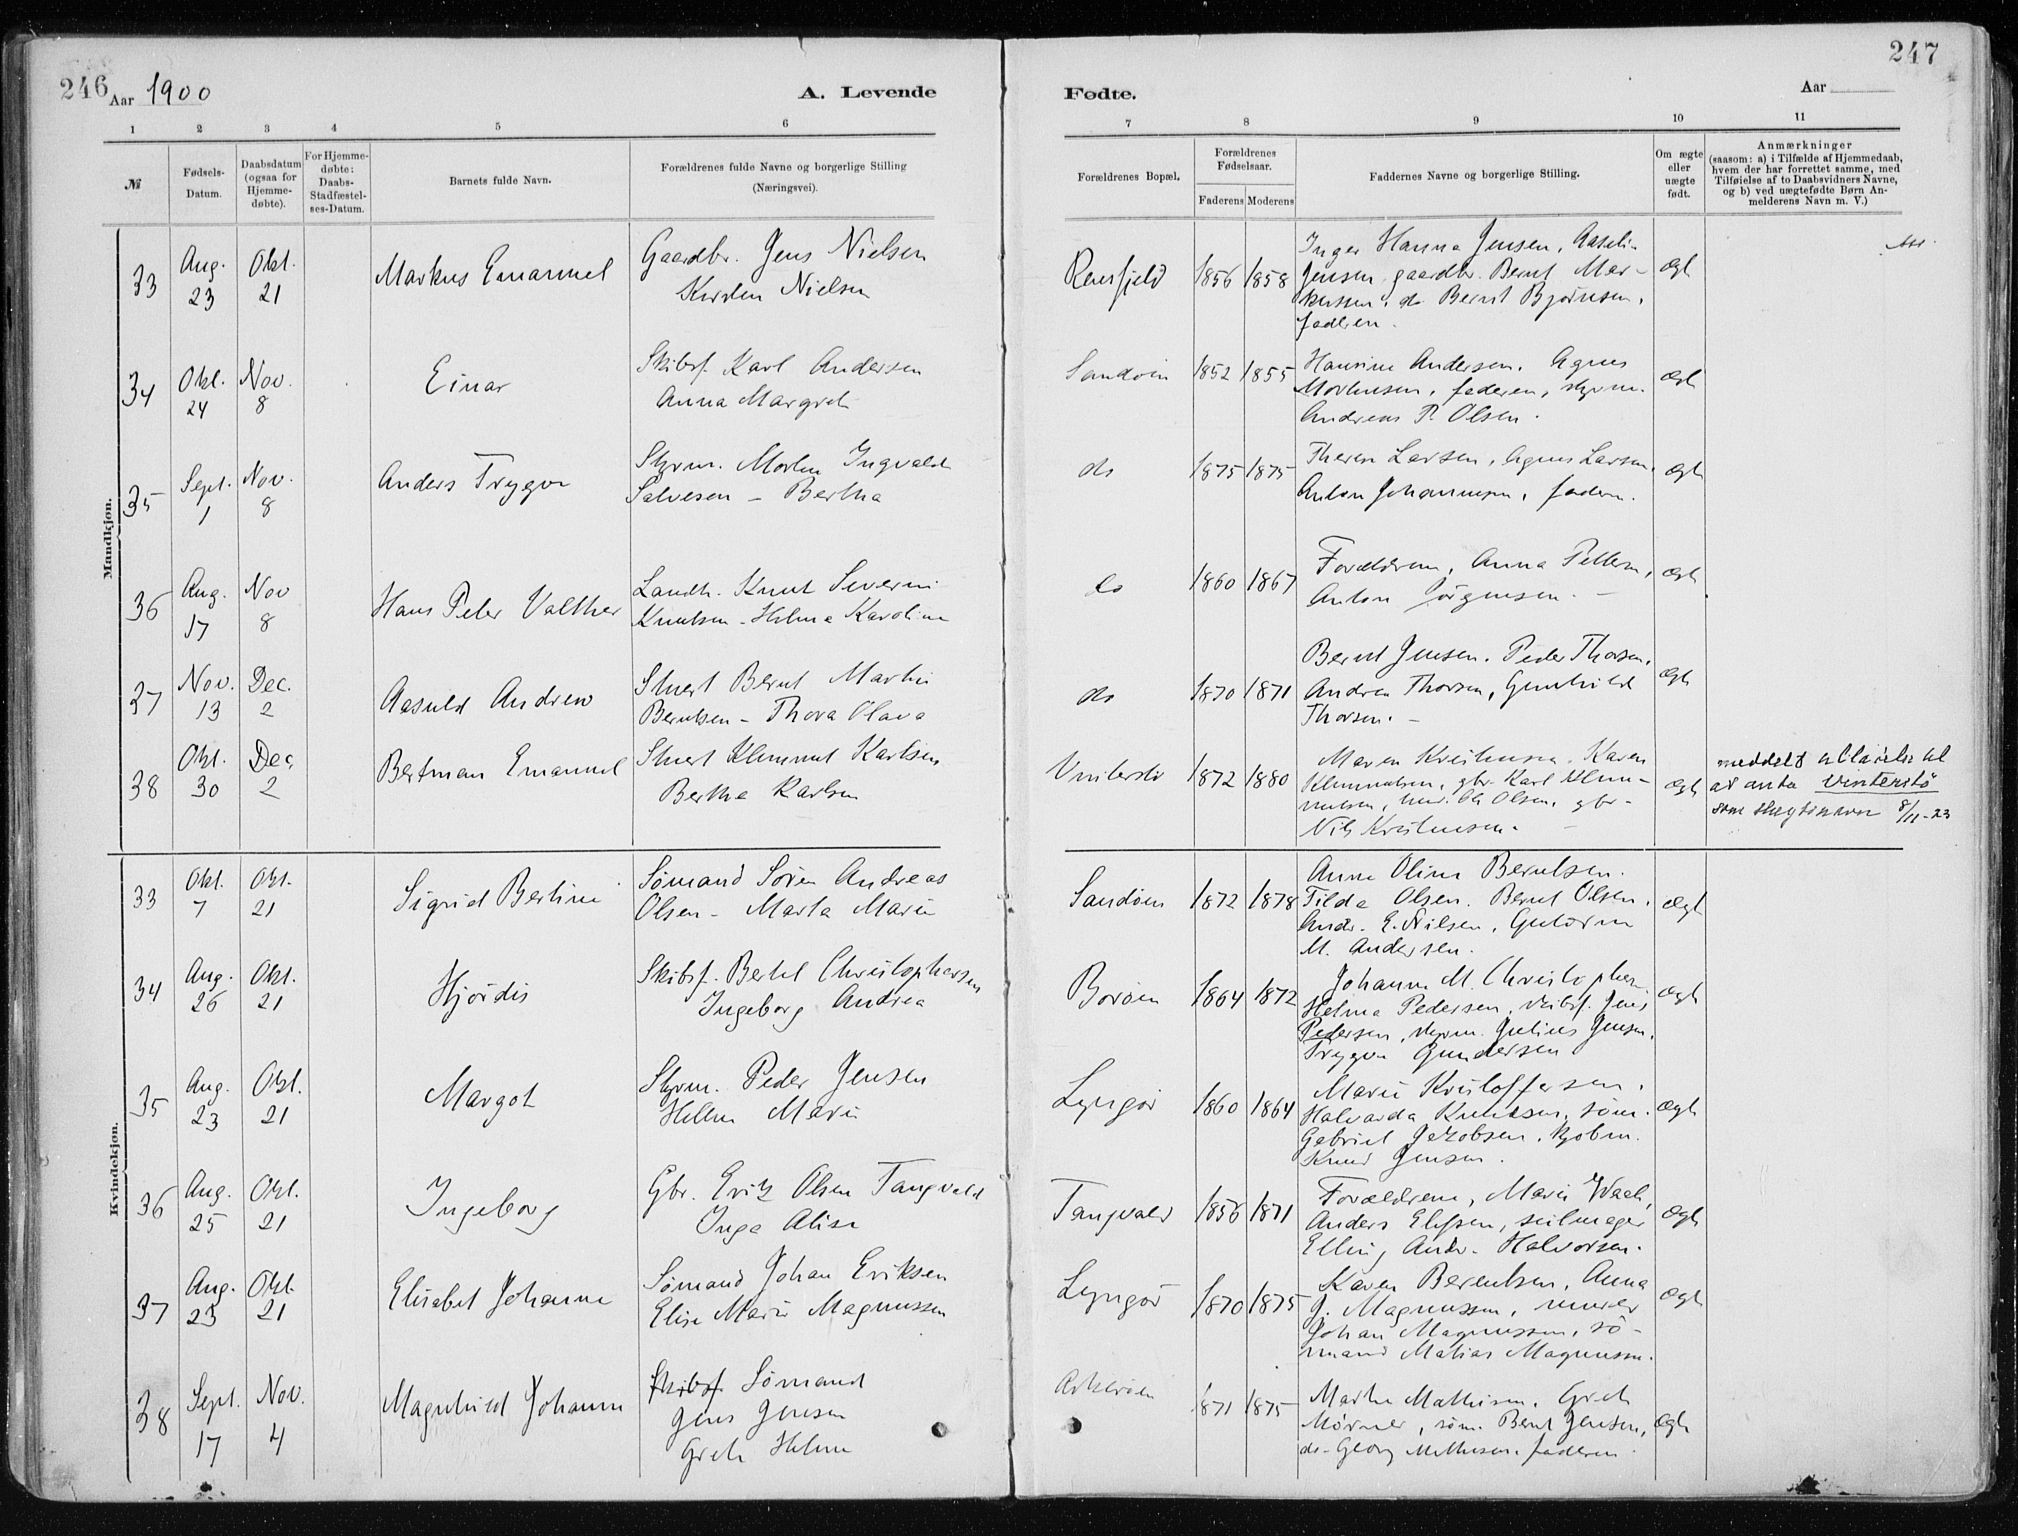 246 Aar 1900
A. Levende
Fødte.
Aar
247
1 2 3 4 5 6 7 8 9 10 11
№
Fødsels-
Datum.
Daabsdatum
(ogsaa for
Hjemme-
døbte).
For Hjemme-
døbte:
Daabs-
Stadfæstel-
ses-Datum.
Barnets fulde Navn.
Forældrenes fulde Navne og borgerlige Stilling
(Næringsvei).
Forældrenes Bopæl.
Forældrenes
Fødselsaar.
Faderens Moderens
Faddernes Navne og borgerlige Stilling.
Om ægte
eller
uægte
født.
Anmærkninger
(saasom: a) i Tilfælde af Hjemmedaab,
hvem der har forrettet samme, med
Tilføielse af to Daabsvidners Navne,
og b) ved uægtefødte Børn An-
melderens Navn m. V.)
Mandkjøn.
33
Aug.
23
Okt.
21
Markus Emanuel
Gaardbr. Jens Nielsen
Kirsten Nielsen
1856 1858
Inger Hanna Jensen,
Jensen, gaardbr. Bernt Mar-
kussen, do Bernt Bjørnsen,
faderen.
Ægte
34
Okt.
24
Nov.
8
Einar
Skibsf. Karl Andersen
Anna Margrete
Sandøen
1852 1855
Hansine Andersen, Agnes
Mortensen, faderen, styrm.
Andreas P. Olsen.
Ægte
35
Sept.
1
Nov.
8
Anders Trygve
Styrm. Morten Ingvald
Salvesen - Bertha
do
1875 1875
Therese Larsen, Agnes Larsen,
Anton Johannesen, faderen.
Ægte
36
Aug.
17
Nov
8
Hans Peter Valther
Landh. Knut Severin
Knutsen - Helma Karoline
do
1860 1867
Forældrene, Anna Pettersen,
Anton Jörgensen. -
Ægte
27
Nov.
13
Dec.
2
Aasuld Andreas
Stuert Bernt Martin
Berntsen - Thora Olava
do
1870 1871
Bernt Jensen. Peder Thorsen,
Andrea Thorsen, Gunhild
Thorsen. -
Ægte
38
Okt.
30
Dec.
2
Bertman Emanuel
Stuert Klemmet Karlsen
Berthe Karlsen
Vinterstö
1872 1880
Maren Kristensen, Karen
Klemmetsen, gbr. Karl Klem-
metsen, Ole Olsen, gbr.
Nils Kristensen. -
Ægte
meddelt til
at anta Vinterstö
som slægtsnavn 8/11-23
Kvindekjøn.
33
Okt.
7
Okt.
21
Sigrid Bertine
Sømand Søren Andreas
Olsen - Marta Marie
Sandøen
1872 1878
Anne Oline Berntsen.
Tilda Olsen. Bernt Olsen,
Andr. E. Nilsen, Gutorm
M. Andersen.
Ægte
34
Aug.
26
Okt.
21
Hjørdis
Skibsf. Bertel Christophersen
Ingeborg Andrea
Borøen
1864 1872
Johanne M. Christopher
Helma Pedersen, skibsf. Jens
Pedersen, styrm. Julius Jensen,
Trygve Gundersen
Ægte
35
Aug.
23
Okt.
21
Margot
Styrm. Peder Jensen
Helene Marie
Lyngør
1860 1864
Marie Kristoffersen,
Halvarda Knudsen, søm.
Gabriel Jakobsen, kjøbm.
Knud Jensen.
Ægte
36
Aug.
25
Okt.
21
Ingeborg
Gbr. Erik Olsen Tangvald
Inga Alise
Tangvald
1856 1871
Forældrene, Marie
Anders Elefsen, seilmager
Elling Andr. Halvorsen.
Ægte
37
Aug.
23
Okt.
21
Elisabet Johanne
Sømand Johan Eriksen
Elise Marie Magnussen
Lyngør
1870 1875
Karen Berentsen, Anna
J. Magnussen, murer
Johan Magnussen, sø-
mand Matias Magnussen.
Ægte
38
Sept.
17
Nov.
4
Magnhild Johanne
Skibsf. Sømand
Jens Jensen
Grete Helene
Askerøen
1871 1875
Marthe Mathisen, Grete
Mörner, søm. Bernt Jensen,
do- Georg Mathisen, faderen.
Ægte